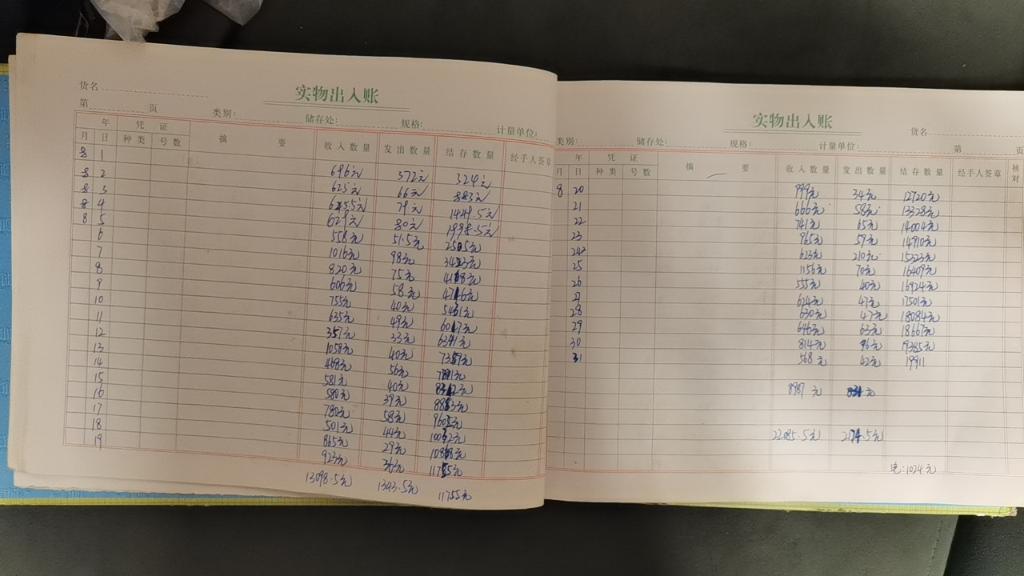 货名
实物出入账
第 页 类别: 储存处: 规格: 计量单位:
年 凭证 摘要 收入数量 发出数量 结存数量 经手人签章
月 日 种类 号数
8 1 696元 372元 324元
8 2 625元 66元 883元
8 3 79元 1449.5元
8 4 629元 80元 1998.5元
8 5 558元 51.5元
6 1016元 98元
7 820元 75元
8 600元 58元
9 755元 40元
10 635元 49元
11 357元 33元
12 1058元 40元
13 468元 56元
14 581元 40元
15 580元 39元
16 780元 58元
17 501元 44元
18 865元 29元
19 923元 36元
13098.5元 1343.5元 11755元
实物出入账
货名
类别: 储存处: 规格: 计量单位: 第 页
年 凭证 摘要 收入数量 发出数量 结存数量 经手人签章 核对
月 日 种类 号数
8 20 999元 34元 12720元
21 666元 58元 13328元
22 741元 65元 14004元
23 965元 59元 14910元
24 623元 210元 15323元
25 1156元 70元 16409元
26 555元 40元 16924元
27 624元 47元 17501元
28 630元 47元 18084元
29 646元 63元 18667元
30 814元 96元 19385元
31 568元 42元 19911
8987元
22085.5元
1024元